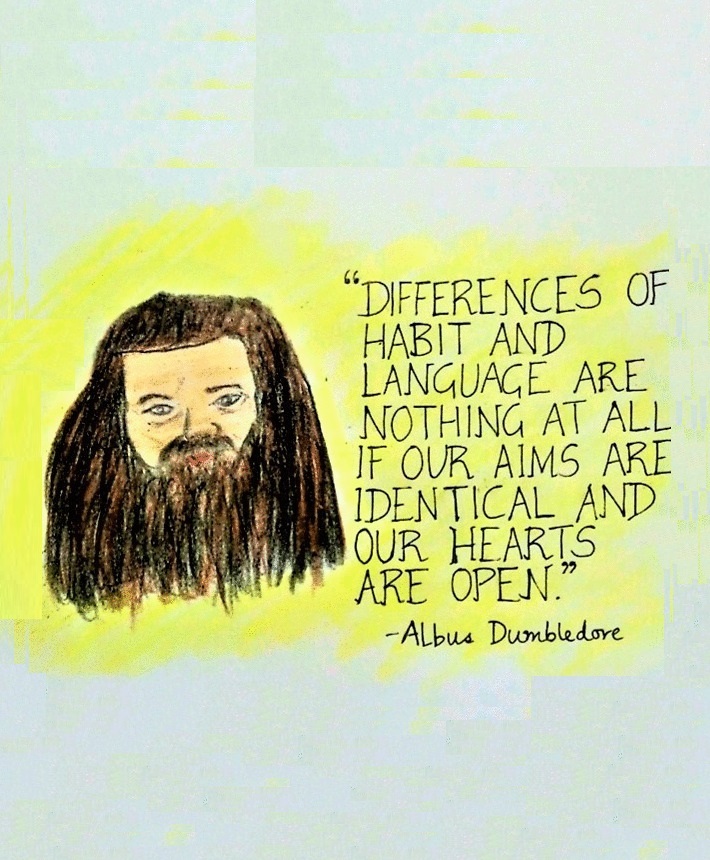 “DIFFERENCES OF
HABIT AND
LANGUAGE ARE
NOTHING AT ALL
IF OUR AIMS ARE
IDENTICAL AND
OUR HEARTS
ARE OPEN.”
-Albus Dumbledore